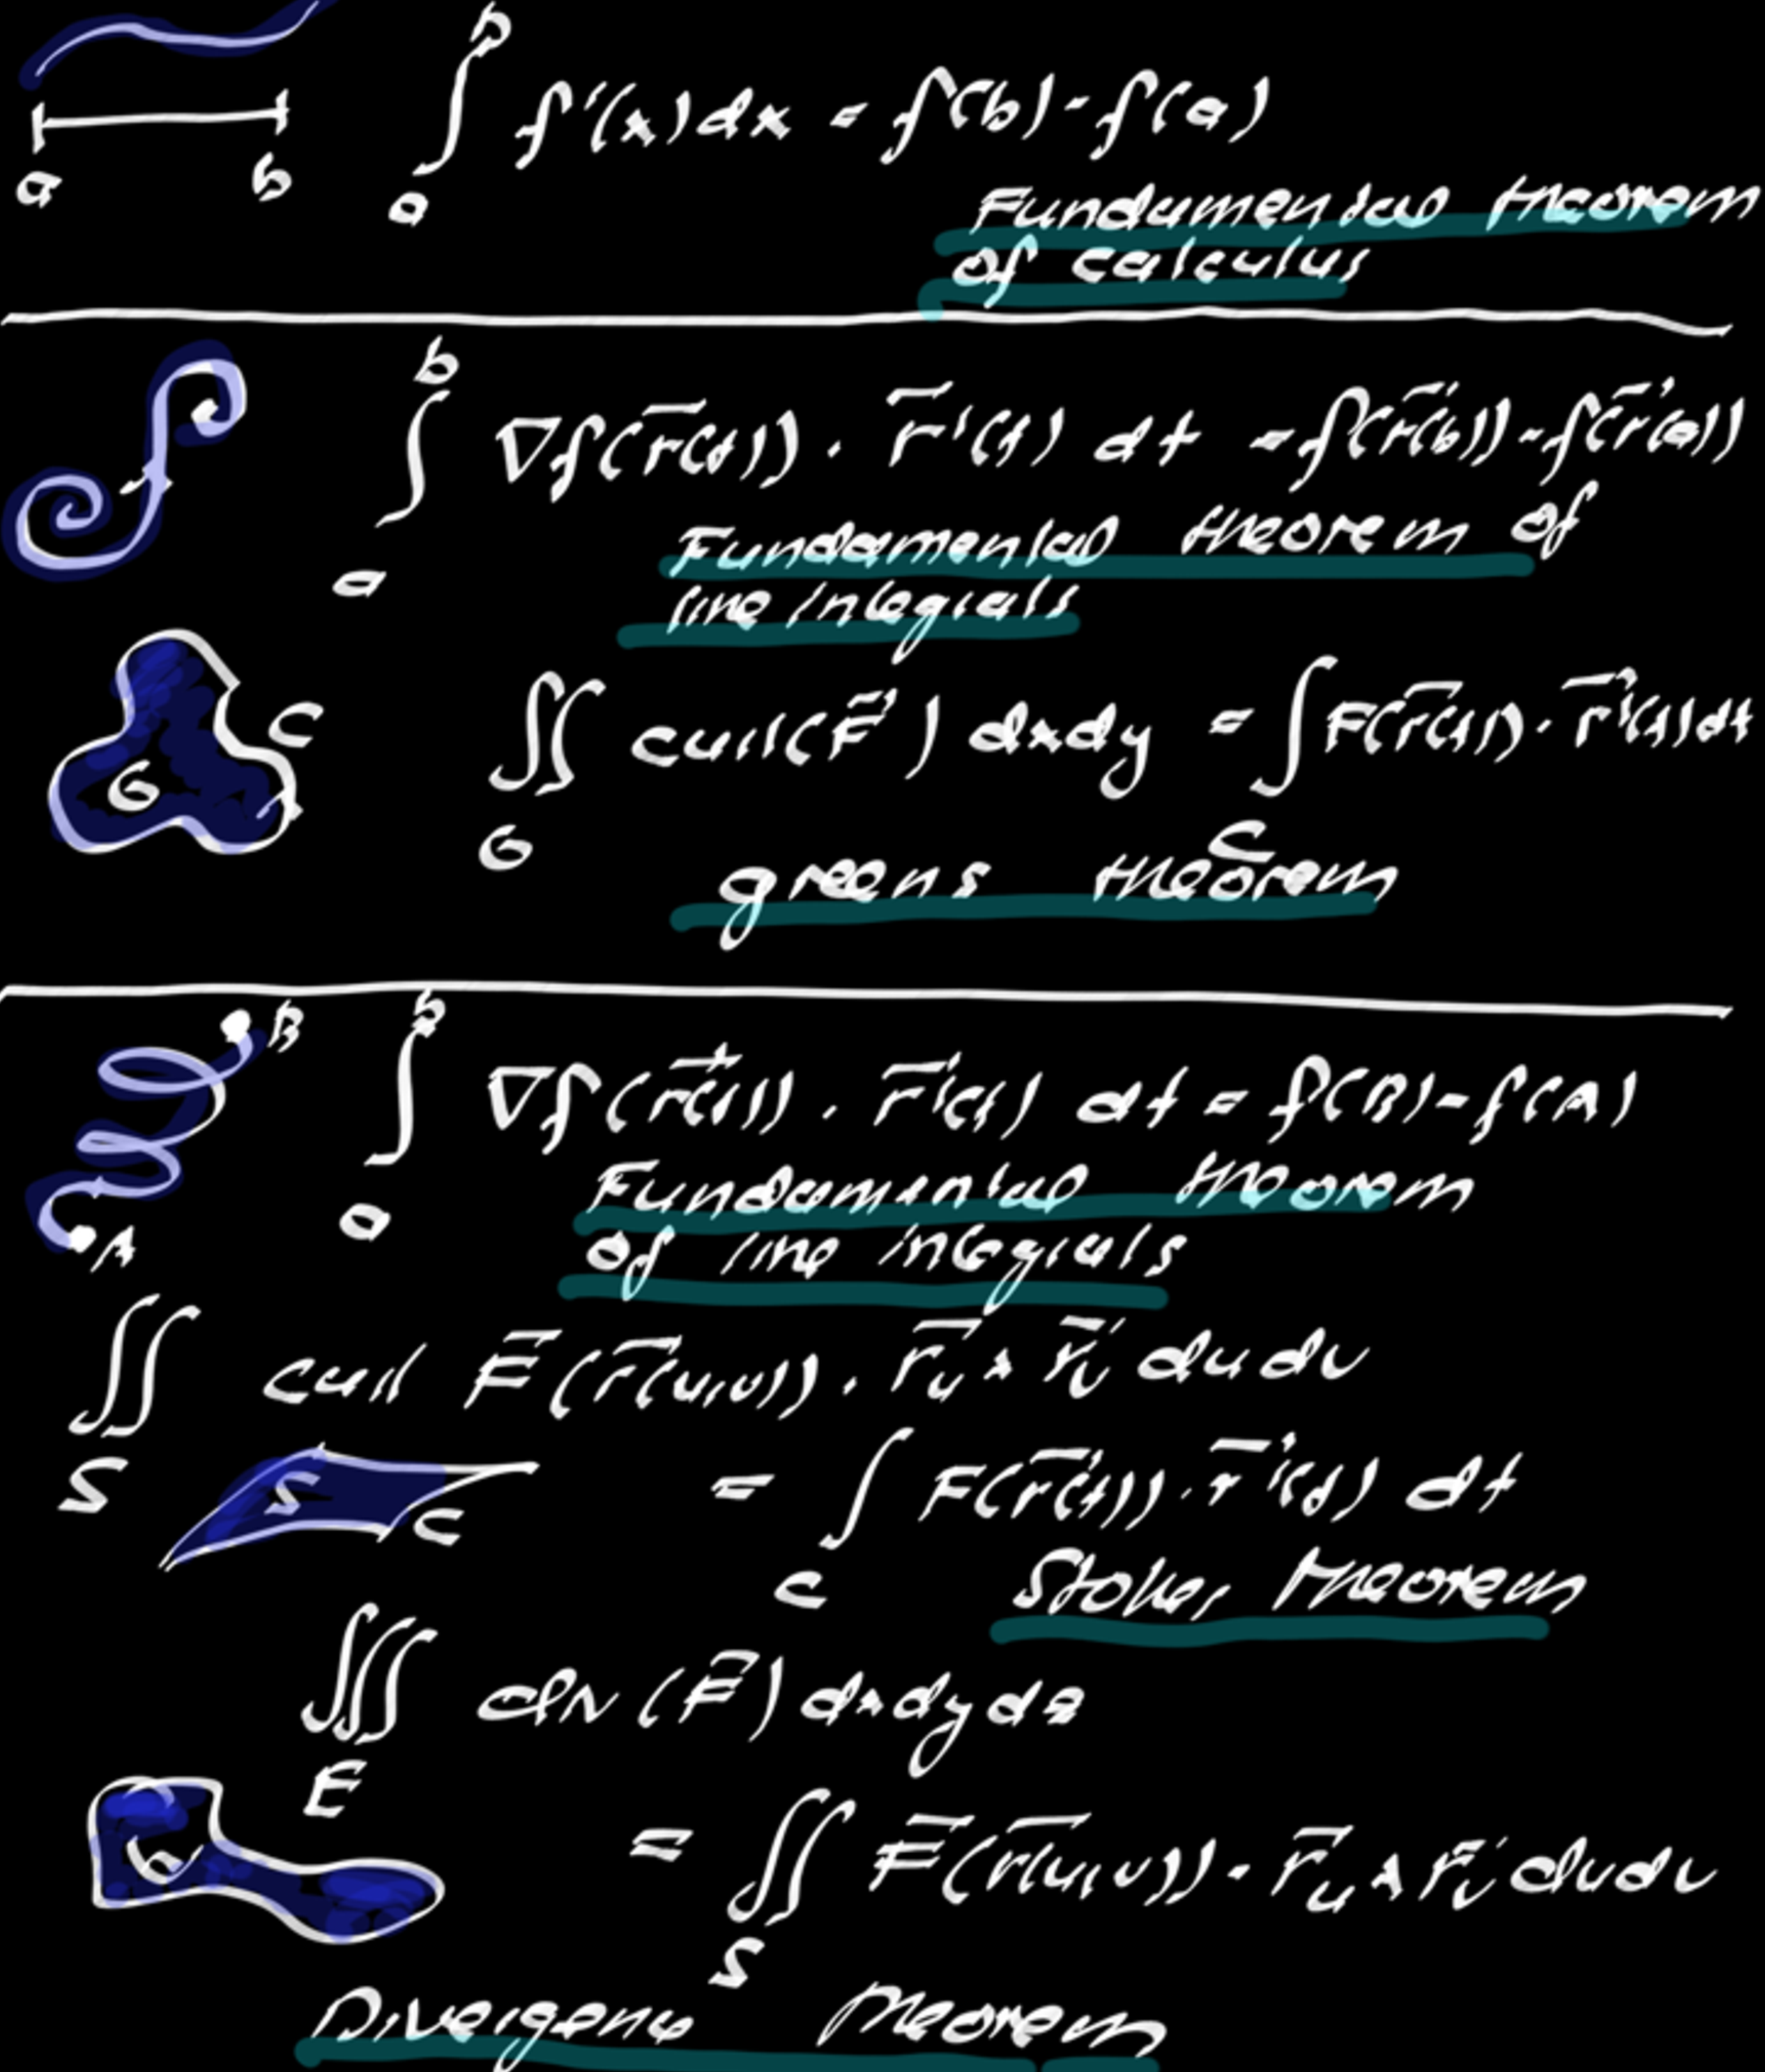 a b ∫_a^b f'(x) dx = f(b) - f(a)
Fundamental theorem
of calculus
∫_a^b ∇f(r⃗(t)) · r⃗'(t) dt = f(r⃗(b)) - f(r⃗(a))
Fundamental theorem of
line integrals
G C ∬_G curl(F⃗) dxdy = ∫_C F(r⃗(t)) · r⃗'(t) dt
greens theorem
A B ∫_a^b ∇f(r⃗(t)) · r⃗'(t) dt = f(B) - f(A)
Fundamental theorem
of line integrals
∬_S curl F⃗(r⃗(u,v)) · r⃗_u × r⃗_v du dv
S C = ∫_C F(r⃗(t)) · r⃗'(t) dt
Stokes theorem
∭_E div(F⃗) dxdydz
= ∬_S F⃗(r⃗(u,v)) · r⃗_u × r⃗_v dudv
Divergence theorem